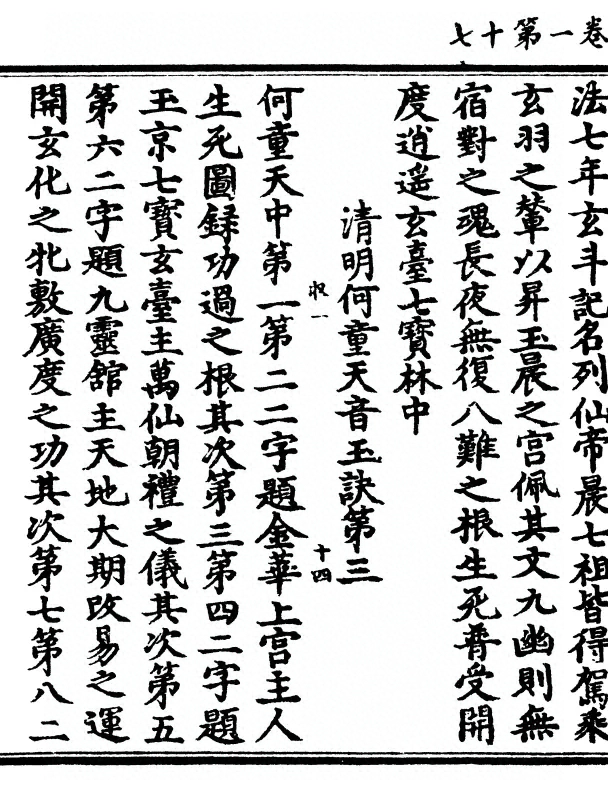 卷一第十七
法七年玄斗記名列仙帝晨七祖皆得駕乘
玄羽之輦以昇玉晨之宮佩其文九幽則無
宿對之魂長夜無復八難之根生死普受開
度逍遙玄臺七寶林中
清明何童天音玉訣第三
收一
十四
何童天中第一第二二字題金華上宮主人
生死圖録功過之根其次第三第四二字題
玉京七寶玄臺主萬仙朝禮之儀其次第五
第六二字題九靈館主天地大期改易之運
開玄化之牝敷廣度之功其次第七第八二